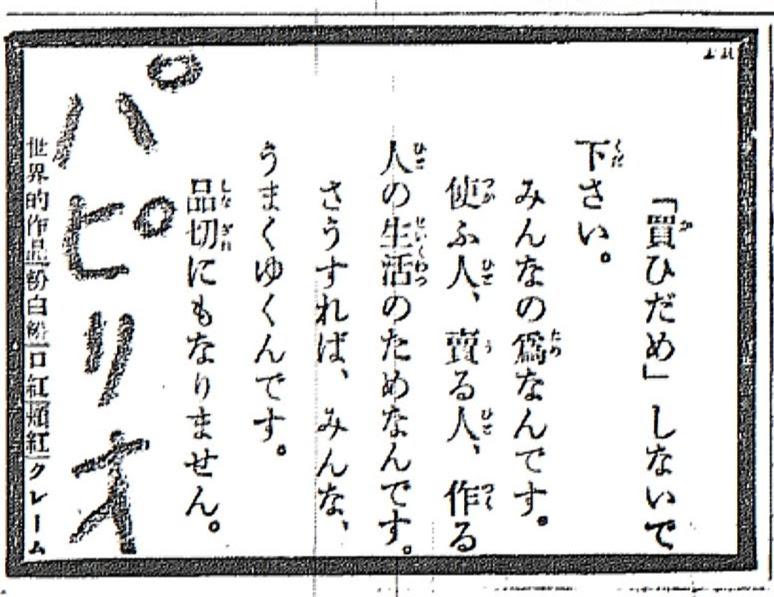 「買ひだめ」しないで
下さい。
みんなの爲なんです。
使ふ人、賣る人、作る
人の生活のためなんです。
さうすれば、みんな、
うまくゆくんです。
品切にもなりません。
パピリオ
世界的作品 粉白粉 口紅 頬紅 クレーム